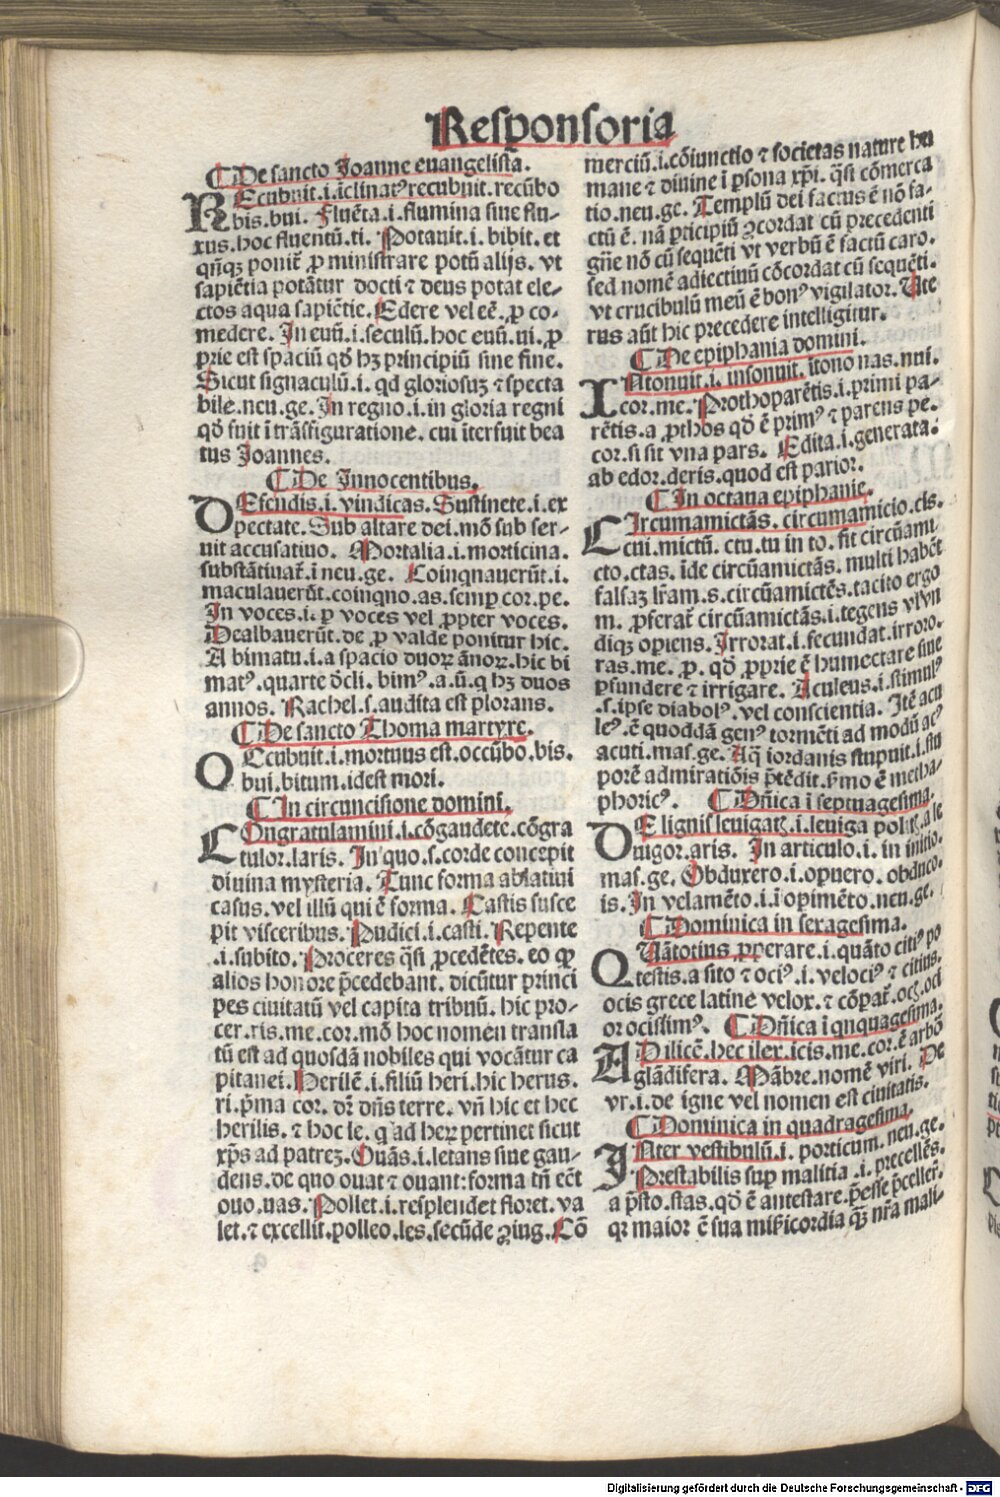 Responsoria
¶De sancto Joanne euangelista.
REcubuit.i.īclinatꝰ recubuit.recūbo
bis.bui. Fluēta.i.flumina siue flu-
xus.hoc fluentū.ti. Potauit.i.bibit.et
qñqꝫ ponit̄ ꝓ ministrare potū alijs.vt
sapiētia potātur docti ⁊ deus potat ele-
ctos aqua sapiētie. Edere vel eē.ꝓ co-
medere. In euū.i.seculū.hoc euū.ui.ꝓ
prie est spaciū qđ hꝫ principiū sine fine.
Sicut signaculū.i.qđ gloriosuꝫ ⁊ specta
bile.neu.ge. In regno.i.in gloria regni
qđ fuit ī trāsfiguratione.cui īterfuit bea
tus Joannes.
¶De Innocentibus.
DEfendis.i.vindicas. Sustinete.i.ex
pectate. Sub altare dei.mō sub ser-
uit accusatiuo. Mortalia.i.morticina.
substātiuat̄.ī neu.ge. Coinqnauerūt.i.
maculauerūt.coinqno.as.semp cor.pe.
In voces.i.ꝑ voces vel ꝓpter voces.
Dealbauerūt.de ꝓ valde ponitur hic.
A bimatu.i.a spacio duoꝝ ānoꝝ.hic bi
matꝰ.quarte dcli.bimꝰ.a.ū.q hꝫ duos
annos. Rachel.s.audita est plorans.
¶De sancto Thoma martyre.
OCcubuit.i.mortuus est.occūbo.bis.
bui.bitum.idest mori.
¶In circuncisione domini.
COngratulamini.i.cōgaudete.cōgra
tulor.laris. In quo.s.corde concepit
diuina mysteria. Tunc forma ablatiui
casus.vel illū qui ē forma. Castis susce
pit visceribus. Pudici.i.casti. Repente
.i.subito. Proceres q̄si ꝓcedētes.eo ꝙ
alios honore p̄cedebant.dicūtur princi
pes ciuitatū vel capita tribuū.hic pro-
cer.ris.me.cor.mō hoc nomen transla
tū est ad quosdā nobiles qui vocātur ca
pitanei. Herilē.i.filiū heri.hic herus.
ri.p̄ma cor.dr̄ dñs terre.vñ hic et hec
herilis.⁊ hoc le.q ad heꝝ pertinet sicut
xp̄s ad patreꝫ. Ouās.i.letans siue gau-
dens.de quo ouat ⁊ ouant:forma tñ eēt
ouo.uas. Pollet.i.resplendet floret.va
let.⁊ excellit.polleo.les.secūde ꝯiug. Cō
merciū.i.cōiunctio ⁊ societas nature hu
mane ⁊ diuine ī ꝑsona xp̄i.q̄si cōmerca
tio.neu.ge. Templū dei factus ē nō fa-
ctū ē.nā ꝑticipiū ꝯcordat cū precedenti
gn̄e nō cū sequēti vt verbū ē factū caro.
sed nomē adiectiuū cōcordat cū sequēti.
vt crucibulū meū ē bonꝰ vigilator. Ute
rus aūt hic precedere intelligitur.
¶De epiphania domini.
INtonuit.i.insonuit.ītono nas.nui.
cor.me. Prothoparētis.i.primi pa-
rētis.a ꝓthos qđ ē primꝰ ⁊ parens pe.
cor.si sit vna pars. Edita.i.generata.
ab edor.deris.quod est parior.
¶In octaua epiphanie.
CIrcumamictās.circumamicio.cis.
cui.mictū.ctu.tu in to.fit circūami
cto.ctas.īde circūamictās.multi habēt
falsaꝫ lr̄am.s.circūamictēs.tacito ergo
m.ꝓferat̄ circūamictās.i.tegens vtvn
diqꝫ opiens. Irrorat.i.fecundat.irroro.
ras.me.ꝓ.qđ ꝓprie ē humectare siue
ꝑfundere ⁊ irrigare. Aculeus.i.stimulꝰ
.s.ipse diabolꝰ.vel conscientia. Itē acu
leꝰ.ē quoddā genꝰ tormēti ad modū acꝰ
acuti.mas.ge. Aq̄ iordanis stupuit.i.stu
porē admiratiōis p̄tēdit.s̄mo ē metha-
phoricꝰ. ¶Dñica ī septuagesima.
DE lignis leuigatꝭ.i.leuiga politꝭ.a le
uigor.aris. In articulo.i.in initio.
mas.ge. Obduxero.i.opuero.obduco.
is. In velamēto.i.ī opimēto.neu.ge.
¶Dominica in sexagesima.
QUātotius.ꝓperare.i.quāto citiꝰ po
testis.a sito ⁊ ociꝰ.i.velociꝰ ⁊ citius.
ocis grece latine velox.⁊ cōpat̄.ocꝭ.oci
or ocissimꝰ. ¶Dñica ī qnquagesima.
AD ilicē.hec ilex.icis.me.cor.ē arbō
glādifera. Mābre.nomē viri. De
vr.i.de igne vel nomen est ciuitatis.
¶Dominica in quadragesima.
INter vestibulū.i.porticum.neu.ge.
Prestabilis sup malitia.i.precellēs.
a p̄sto.stas.qđ ē antestare.p̄esse p̄celler̄.
qꝛ maior ē sua mīsicordia qꝫ nr̄a mali-
Digitalisierung gefördert durch die Deutsche Forschungsgemeinschaft - DFG